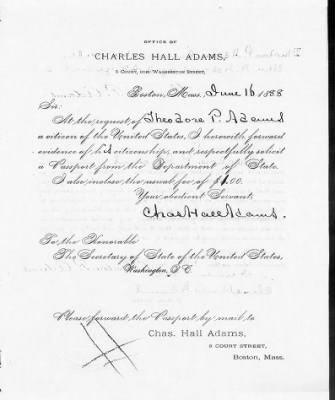 OFFICE OF
CHARLES HALL ADAMS,
5 COURT, COR. WASHINGTON STREET,
Boston, Mass. June 16 1888
Sir:
At the request of Theodore P. Adams
a citizen of the United States, I herewith forward
evidence of his citizenship, and respectfully solicit
a Passport from the Department of State.
I also inclose the usual fee of $1.00.
Your obedient Servant,
Chas Hall Adams.
To the Honorable
The Secretary of State of the United States,
Washington, D.C.
Please forward the Passport, by mail to
Chas. Hall Adams,
5 COURT STREET,
Boston, Mass.